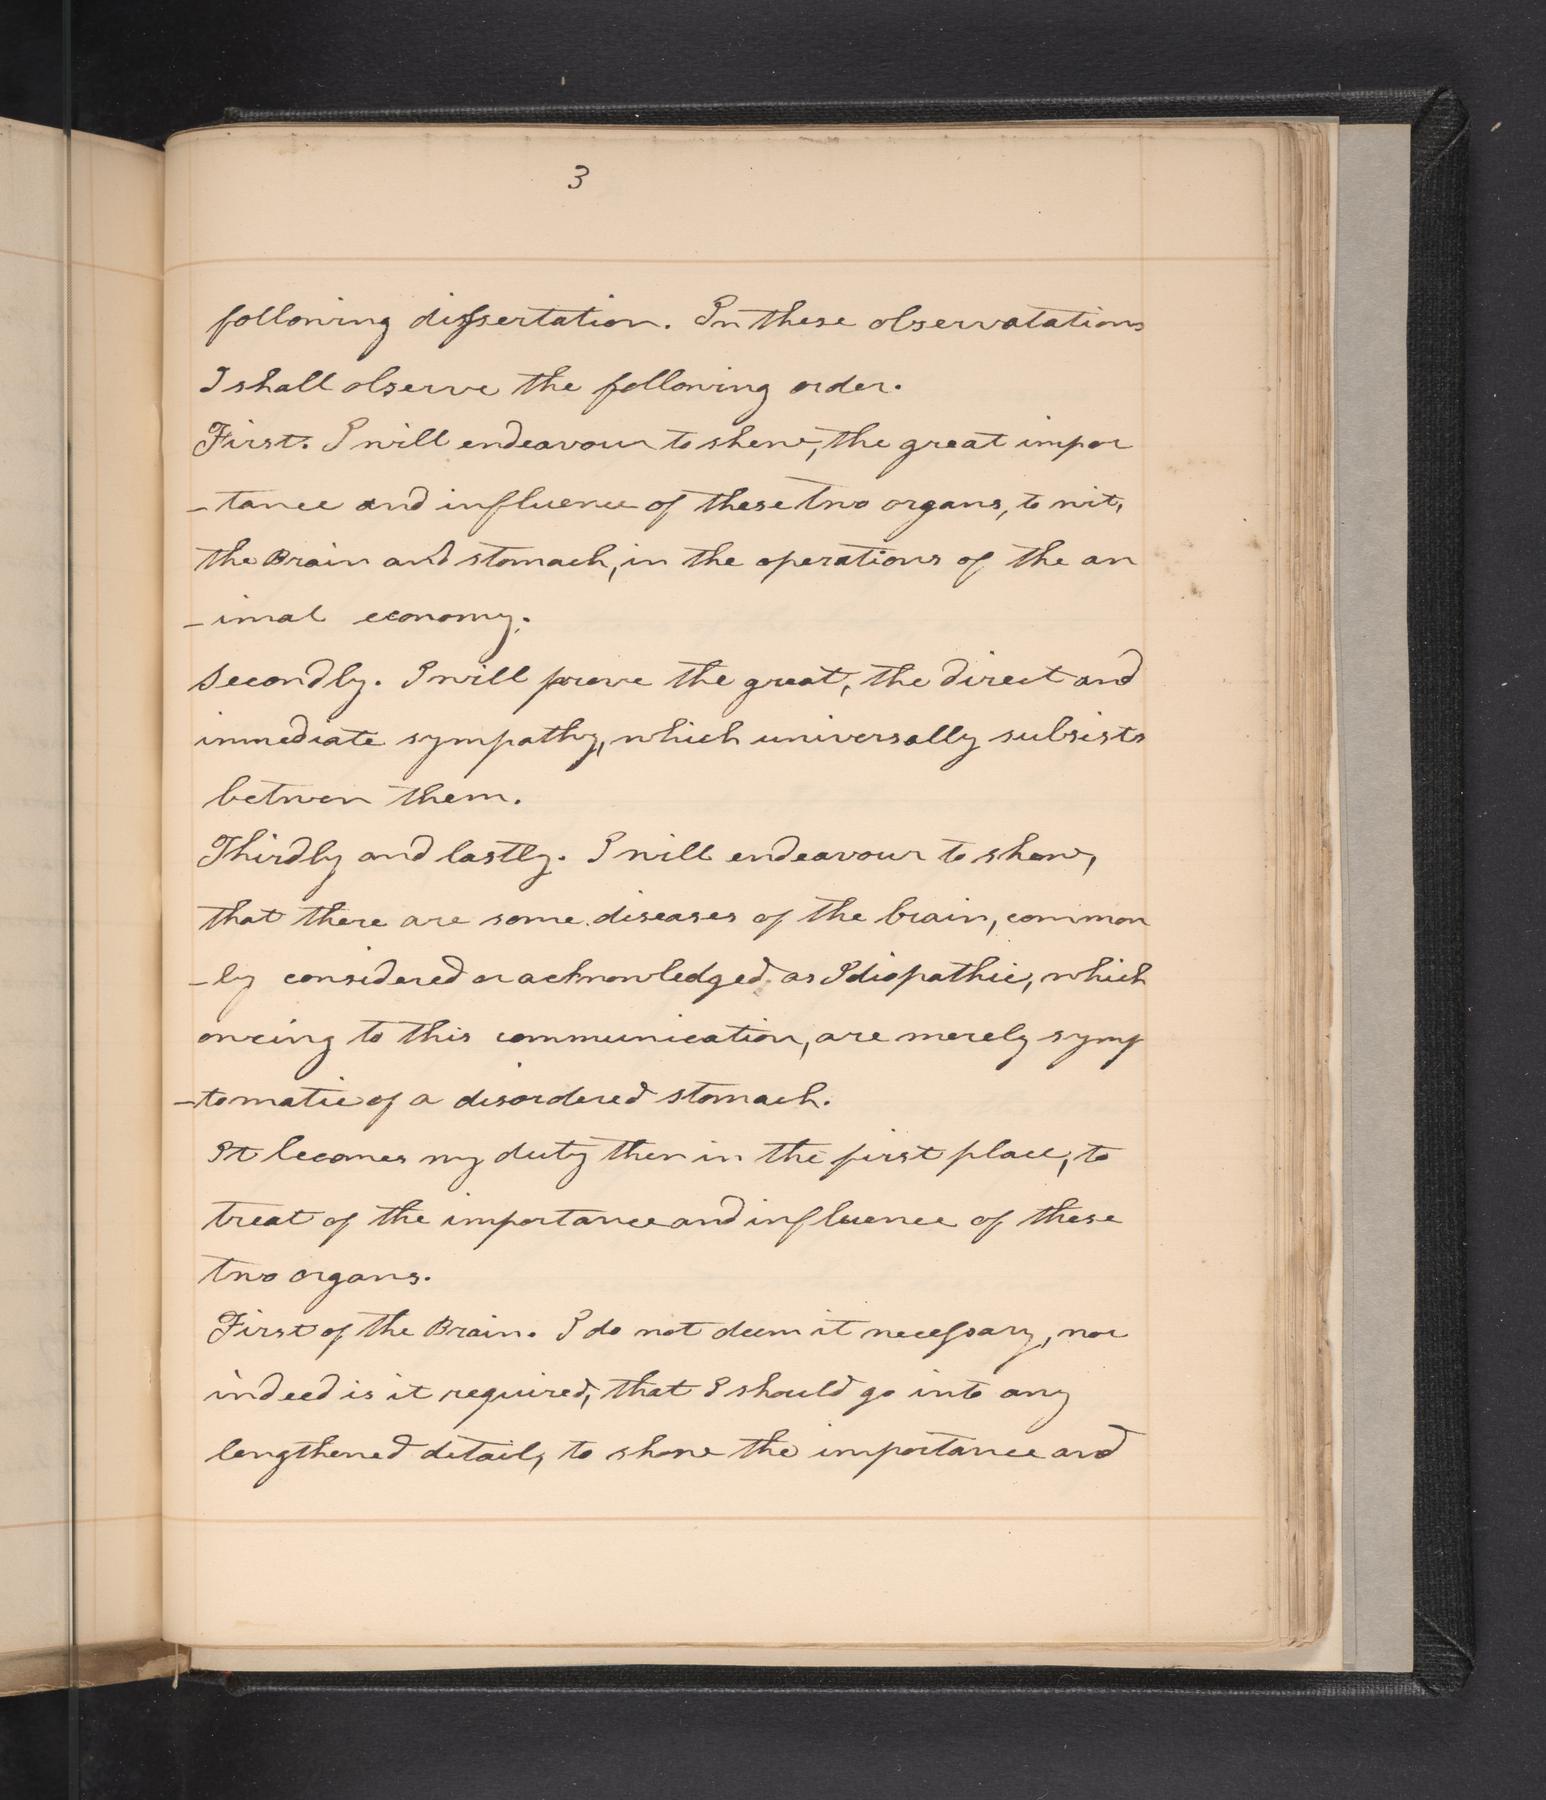 3
following dissertation. In these observatations
I shall observe the following order.
First. I will endeavour to shew, the great impor
-tance and influence of these two organs, to wit,
the Brain and stomach, in the operations of the an
-imal economy.
Secondly. I will prove the great, the direct and
immediate sympathy, which universally subsists
between them.
Thirdly and lastly. I will endeavour to show,
that there are some diseases of the brain, common
-ly considered or acknowledged as Idiopathic, which
owing to this communication, are merely symp
-tomatic of a disordered stomach.
It becomes my duty then in the first place, to
treat of the importance and influence of these
two organs.
First of the Brain. I do not deem it necessary, nor
indeed is it required, that I should go into any
lengthened detail, to show the importance and